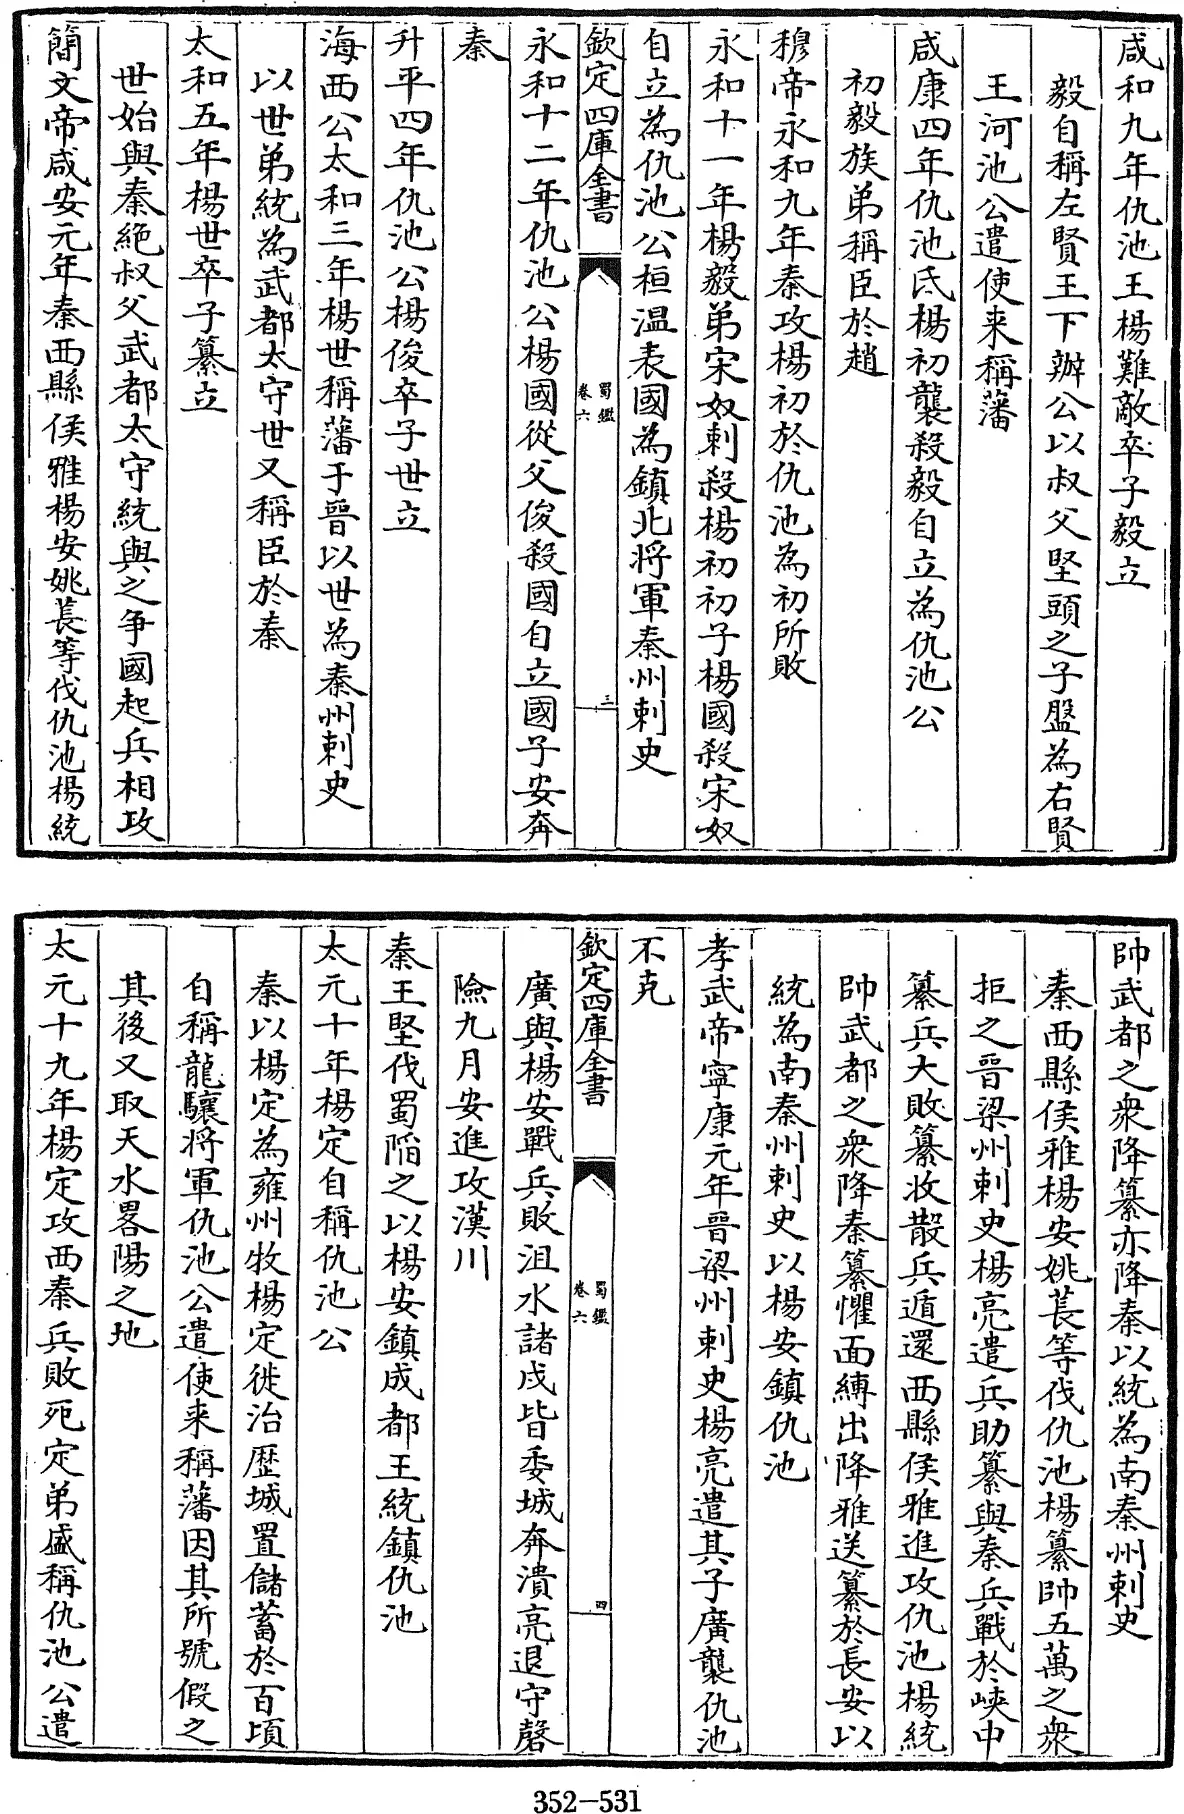 咸和九年仇池王楊難敵卒子毅立
毅自稱左賢王下辦公以叔父堅頭之子盤為右賢
王河池公遣使来稱藩
咸康四年仇池氐楊初襲殺毅自立為仇池公
初毅族弟稱臣於趙
穆帝永和九年秦攻楊初於仇池為初所敗
永和十一年楊毅弟宋奴刺殺楊初初子楊國殺宋奴
自立為仇池公桓温表國為鎮北将軍秦州刺史
欽定四庫全書
蜀鑑
卷六
三
永和十二年仇池公楊國從父俊殺國自立國子安奔
秦
升平四年仇池公楊俊卒子世立
海西公太和三年楊世稱藩于晉以世為秦州刺史
以世弟統為武都太守世又稱臣於秦
太和五年楊世卒子纂立
世始與秦絶叔父武都太守統與之争國起兵相攻
簡文帝咸安元年秦西縣侯雅楊安姚萇等伐仇池楊統
帥武都之衆降纂亦降秦以統為南秦州刺史
秦西縣侯雅楊安姚萇等伐仇池楊纂帥五萬之衆
拒之晉梁州刺史楊亮遣兵助纂與秦兵戰於峽中
纂兵大敗纂收散兵遁還西縣侯雅進攻仇池楊統
帥武都之衆降秦纂懼面縛出降雅送纂於長安以
統為南秦州刺史以楊安鎮仇池
孝武帝寧康元年晉梁州刺史楊亮遣其子廣襲仇池
不克
欽定四庫全書
蜀鑑
卷六
四
廣與楊安戰兵敗沮水諸戍皆委城奔潰亮退守磬
險九月安進攻漢川
秦王堅伐蜀陷之以楊安鎮成都王統鎮仇池
太元十年楊定自稱仇池公
秦以楊定為雍州牧楊定徙治歷城置儲蓄於百頃
自稱龍驤将軍仇池公遣使来稱藩因其所號假之
其後又取天水畧陽之地
太元十九年楊定攻西秦兵敗死定弟盛稱仇池公遣
352-531